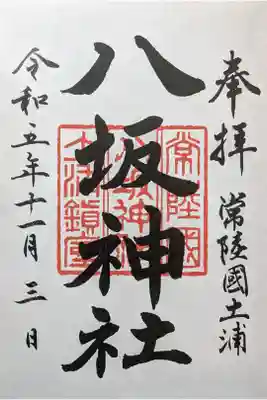 奉拝 常陸國土浦
八坂神社
令和五年十一月三日
常陸國
八坂神社
土浦鎮座